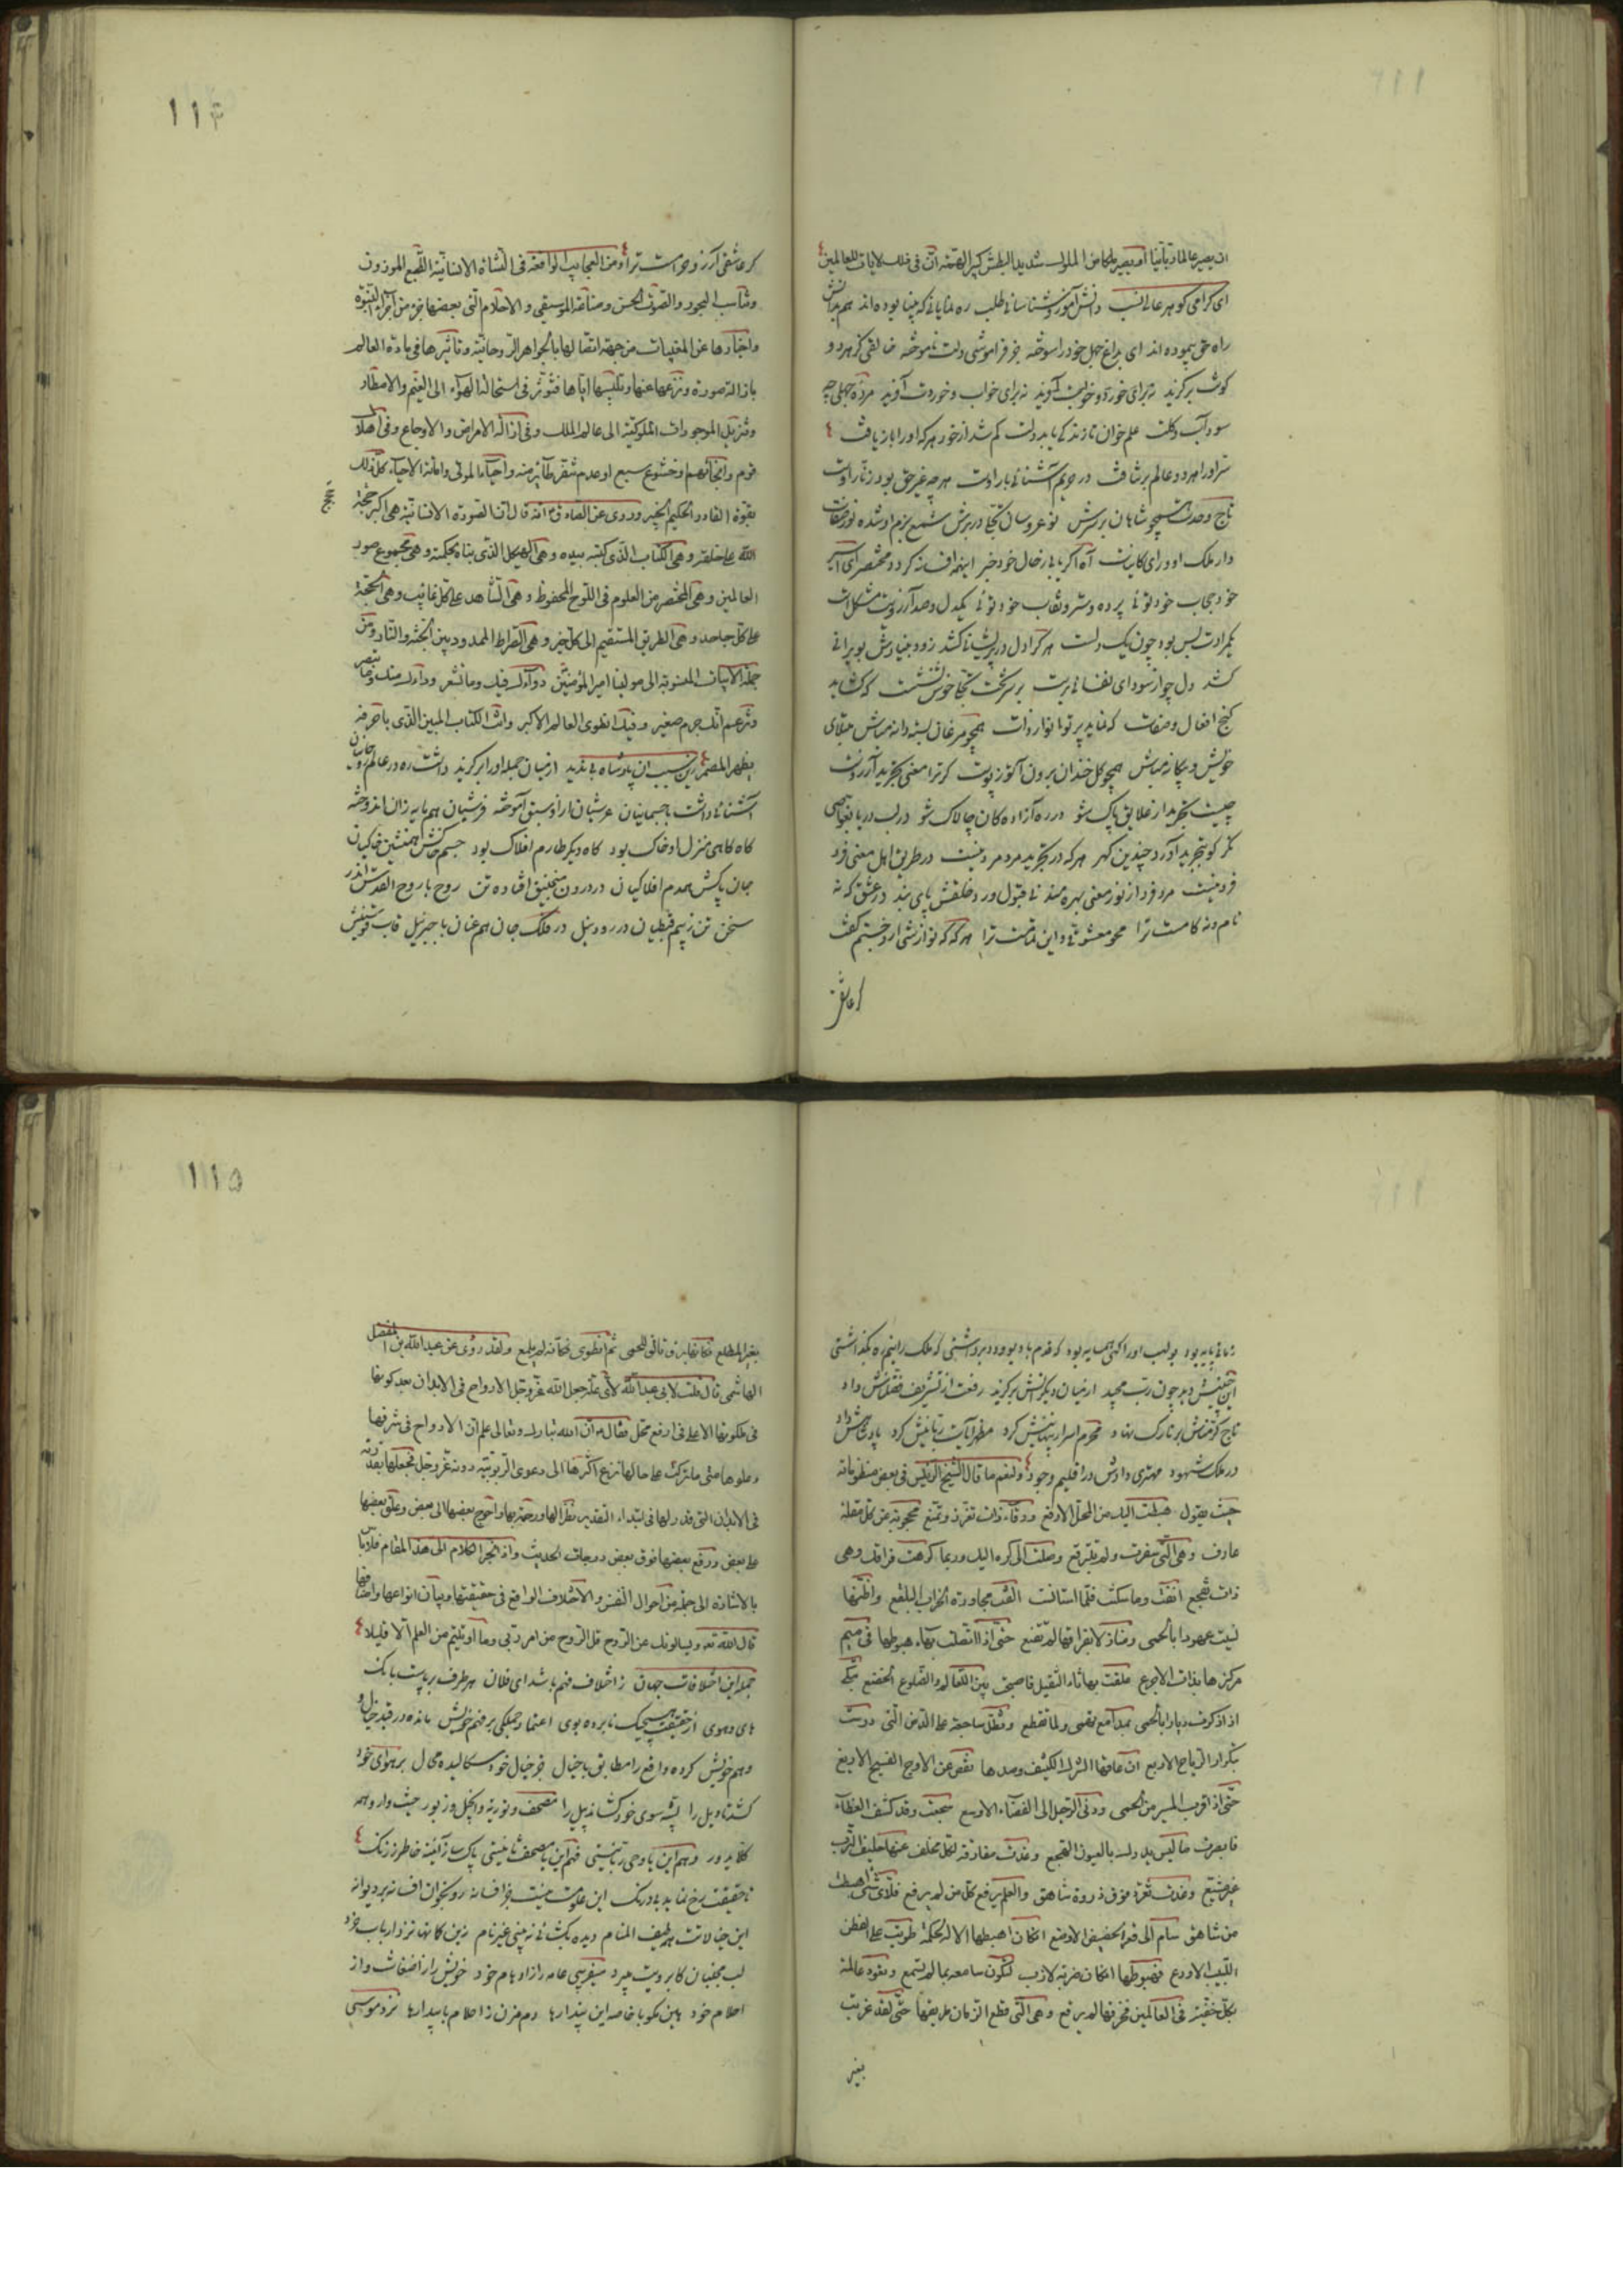 ان يصير عالما ربانيا او يصير كخامن الملوك شديد البطش كبير الهمة ان فى ذلك لايات للعالمين
ای گرامی گوهر عالی نسب دانش آموز و شناسائی طلب ره نمایانی که بینا بوده اند هم بدانش
راه حق پیموده اند ای بداغ جهل خود را سوخته جز فراموشی دلت ناموخته خالقی کز هر دو
کونت برگزید نه برای خورد و خوابت آفرید نه برای خواب و خوردت آفرید
علم خوان تا زندگی یابد دلت گم شد از خود هر که او را باز یافت
سر او را هر دو عالم بر نتافت در حریم آشنائی بار اوست هر چه غیر حق بود زنار اوست
تاج وحدت همچو شاهان بر سرش نو عروسان در برش شمع بزم او شده نور صفات
دار ملک او ورای کاینات آه اگر یابی ز حال خود خبر اینهمه افسانه گردد مختصر ای اسیر
خود حجاب خود توئی پرده و ستر و نقاب خود توئی یکدل و صد آرزو بس مشکل است
یکمرادت بس بود چون یک دلست هر کرا دل در پریشانی کشد زود بنیادش بویرانی
کشد دل چو از سودای نفسانی برست بر سر تخت خوش نشست که گشاید
گنج افعال و صفات که نماید پرتو انوار ذات همچو مرغان بسته دانه مباش مبتلای
خویش و بیگانه مباش همچو گل خندان برون آ تو ز پوست گر ترا معنی تجرید آرزوست
چیست تجرید از علایق پاک شو در ره آزادگان چالاک شو در لب دریا
گر کو تجرید آورد چندین گهر هر که در تجرید مرد مرد نیست در طریق اهل معنی فرد
فرد نیست مرد فرد از نور معنی بهره مند نی قبول و رد خلقش پای بند در عشق که نه
نام و نه کامست ترا محو معشوقی و این تمامست ترا هر که که تو از شمار و ختم گفت
گر عاشقی
۱۱۴
گر عاشقی آرزو حرامست ترا ومن العجايب الواقعة فى النشاة الانسانية الطبع الموزون
وتناسب البحور والصوت الحسن وصناعة الموسيقى والاحلام التى بعضها جزء من اجزاء النبوة
واخبارها عن المغيبات من جهة اتصالها بالجواهر الروحانية وتاثيرها فى مادة العالم
بازالة صورة ونزعها عنها وتلبيسها اياها فتؤثر فى استحالة الهواء الى الغيم والامطار
وتنزيل الموجودات الملكوتية الى عالم الملك وفى ازالة الامراض والاوجاع وفى اهلاك
قوم وانجائهم وخشوع سبع او عدم تنفر طائر منه واحياء الموتى واماتة الاحياء كل ذلك
بقوة القادر الحكيم الخبير وروى عن الصادق ع انه قال ان الصورة الانسانية هى اكبر حجة
الله على خلقه وهى الكتاب الذى كتبه بيده وهى الهيكل الذى بناه بحكمته وهى مجموع صور
العالمين وهى المختصر من العلوم فى اللوح المحفوظ وهى الشاهد على كل غائب وهى الحجة
على كل جاحد وهى الطريق المستقيم الى كل خير وهى الصراط الممدود بين الجنة والنار ومن
جملة الابيات المنسوبة الى مولينا امير المؤمنين دوآءك فيك وما تشعر ودآءك منك وما تبصر
وتزعم انك جرم صغير وفيك انطوى العالم الاكبر وانت الكتاب المبين الذى باحرفه
يظهر المضمر زین سبب ان پادشاه بی ندید از میان جمله او را برگزید داشت ره در عالم روحانیان
آشنائی داشت با جسمانیان عرشیان را زو سبق آموخته فرشیان هم مایه زان اندوخته
گاه گاهی منزل او خاک بود گاه دیگر طارم افلاک بود جسم خاکش همنشین خاکیان
جان پاکش همدم افلاکیان در درون منجنیق افتاده تن روح با روح القدس اندر
سخن تن ز بیم قبطیان در رود نیل در فلک جان هم عنان با جبرئیل قاب قوسینش
زمانی پایه بود بولهب او را گهی همسایه بود
این چنینش دید چون رب مجید از میان دیگرانش برگزید رفعت از تشریف فضلش داد
تاج کرمنش بر تارک نهاد محرم اسرار پنهانیش کرد مظهر آیات ربانیش کرد پادشاهش داد
در ملک شهود مهتری دادش در اقلیم وجود ولنعم ما قال الشيخ الرئيس فى بعض منظوماته
حيث يقول هبطت اليك من المحل الارفع ورقاء ذات تعزز وتمنع محجوبة عن كل مقلة
عارف وهى التى سفرت ولم تتبرقع وصلت الى كره اليك وربما كرهت فراقك وهى
ذات تفجع انفت وما سكنت فلما استانست الفت مجاورة الخراب البلقع واظنها
نسيت عهودا بالحمى ومنازلا بفراقها لم تقنع حتى اذا اتصلت بهاء هبوطها فى ميم
مركزها بذات الاجرع علقت بها ثاء الثقيل فاصبحت بين المعالم والطلوع الخضع تبكى
اذا ذكرت ديارا بالحمى بمدامع تهمى ولما تقطع وتظل ساجعة على الدمن التى درست
بتكرار الرياح الاربع ان عاقها الشرك الكثيف وصدها نقص عن الاوج الفسيح الاربع
حتى اذا قرب المسير من الحمى ودنى الرحيل الى الفضاء الاوسع سجعت وقد كشف الغطآء
فابصرت ما ليس يدرك بالعيون الهجع وغدت مفارقة لكل مخلف عنها حليف الترب
غير مشيع وغدت تغرد فوق ذروة شاهق والعلم يرفع كل من لم يرفع فلاى شئ اهبطت
من شاهق سام الى قعر الحضيض الاوضع ان كان اهبطها الاله لحكمة طويت على الفطن
اللبيب الاورع فهبوطها ان كان ضربة لازب لتكون سامعة بما لم تسمع وتعود عالمة
بكل خفية فى العالمين فخرقها لم يرقع وهى التى قطع الزمان طريقها حتى لقد غربت
بغير
۱۱۵
بغير المطلع فكانها برق تالق للحمى ثم انطوى فكانه لم يلمع ولقد روى عن عبد الله بن الفضل
الهاشمى قال قلت لابى عبد الله لاى علة جعل الله عز وجل الارواح فى الابدان بعد كونها
فى ملكوتها الاعلى فى ارفع محل فقال ع ان الله تبارك وتعالى علم ان الارواح فى شرفها
وعلوها متى ما تركت على حالها نزع اكثرها الى دعوى الربوبية دونه عز وجل فجعلها بقدرته
فى الابدان التى قدر لها فى ابتداء التقدير نظرا لها ورحمة بها واحوج بعضها الى بعض وعلق بعضها
على بعض ورفع بعضها فوق بعض درجات الحديث واذ انجر الكلام الى هذا المقام فلا باس
بالاشارة الى جملة من احوال النفس والاختلاف الواقع فى حقيقتها وبيان انواعها واصنافها
قال الله تعه ويسالونك عن الروح قل الروح من امر ربى وما اوتيتم من العلم الا قليلا
جمله این اختلافات جهان ز اختلاف فهم باشد ای فلان هر طرف برپاست بانگ
های و هوی از حقیقت هیچیک نابرده بوی اعتماد جملگی بر فهم خویش مانده در قید خیال و
وهم خویش کرده واقع را مطابق با خیال جز خیال خود سگالیده محال بر هوای خود
کشد تاویل را پشه سوی خود کشاند پیل را مصحف و توریة و انجیل و زبور
فهم این با مصحف پاک ساز آئینه خاطر ز زنگ
تا حقیقت رخ نماید بیدرنگ این علومت نیست جز افسانه رو بخوان افسانه بر دیوانه
این خیالاتست طیف المنام دیده بگشائی نه بینی غیر نام
لب مجنبان کابرویت میبرد میفریبی عامه را ز اوهام خود خویش را ز اضغاث و از
احلام خود هین مگو با خاصه این پندارها دم مزن ز احلام با بیدارها نزد موسی